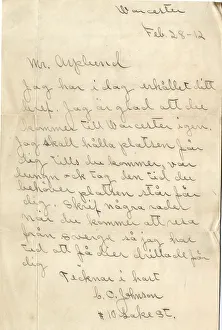 Worcester
Feb. 28-12
Mr. Asplund
Jag har i dag erhållet ditt
bref. Jag är glad att du
kommer till Worcester igen.
Jag skall hålla platsen för
dig tills du kommer, var
lungn ock tag den tid du
behöver platsen står för
dig. Skrif några rader
när du kommer att resa
från Sverge så jag har
tid att få der för
dig
Tecknar i hast
C. O. Johnson
10 Lake St.